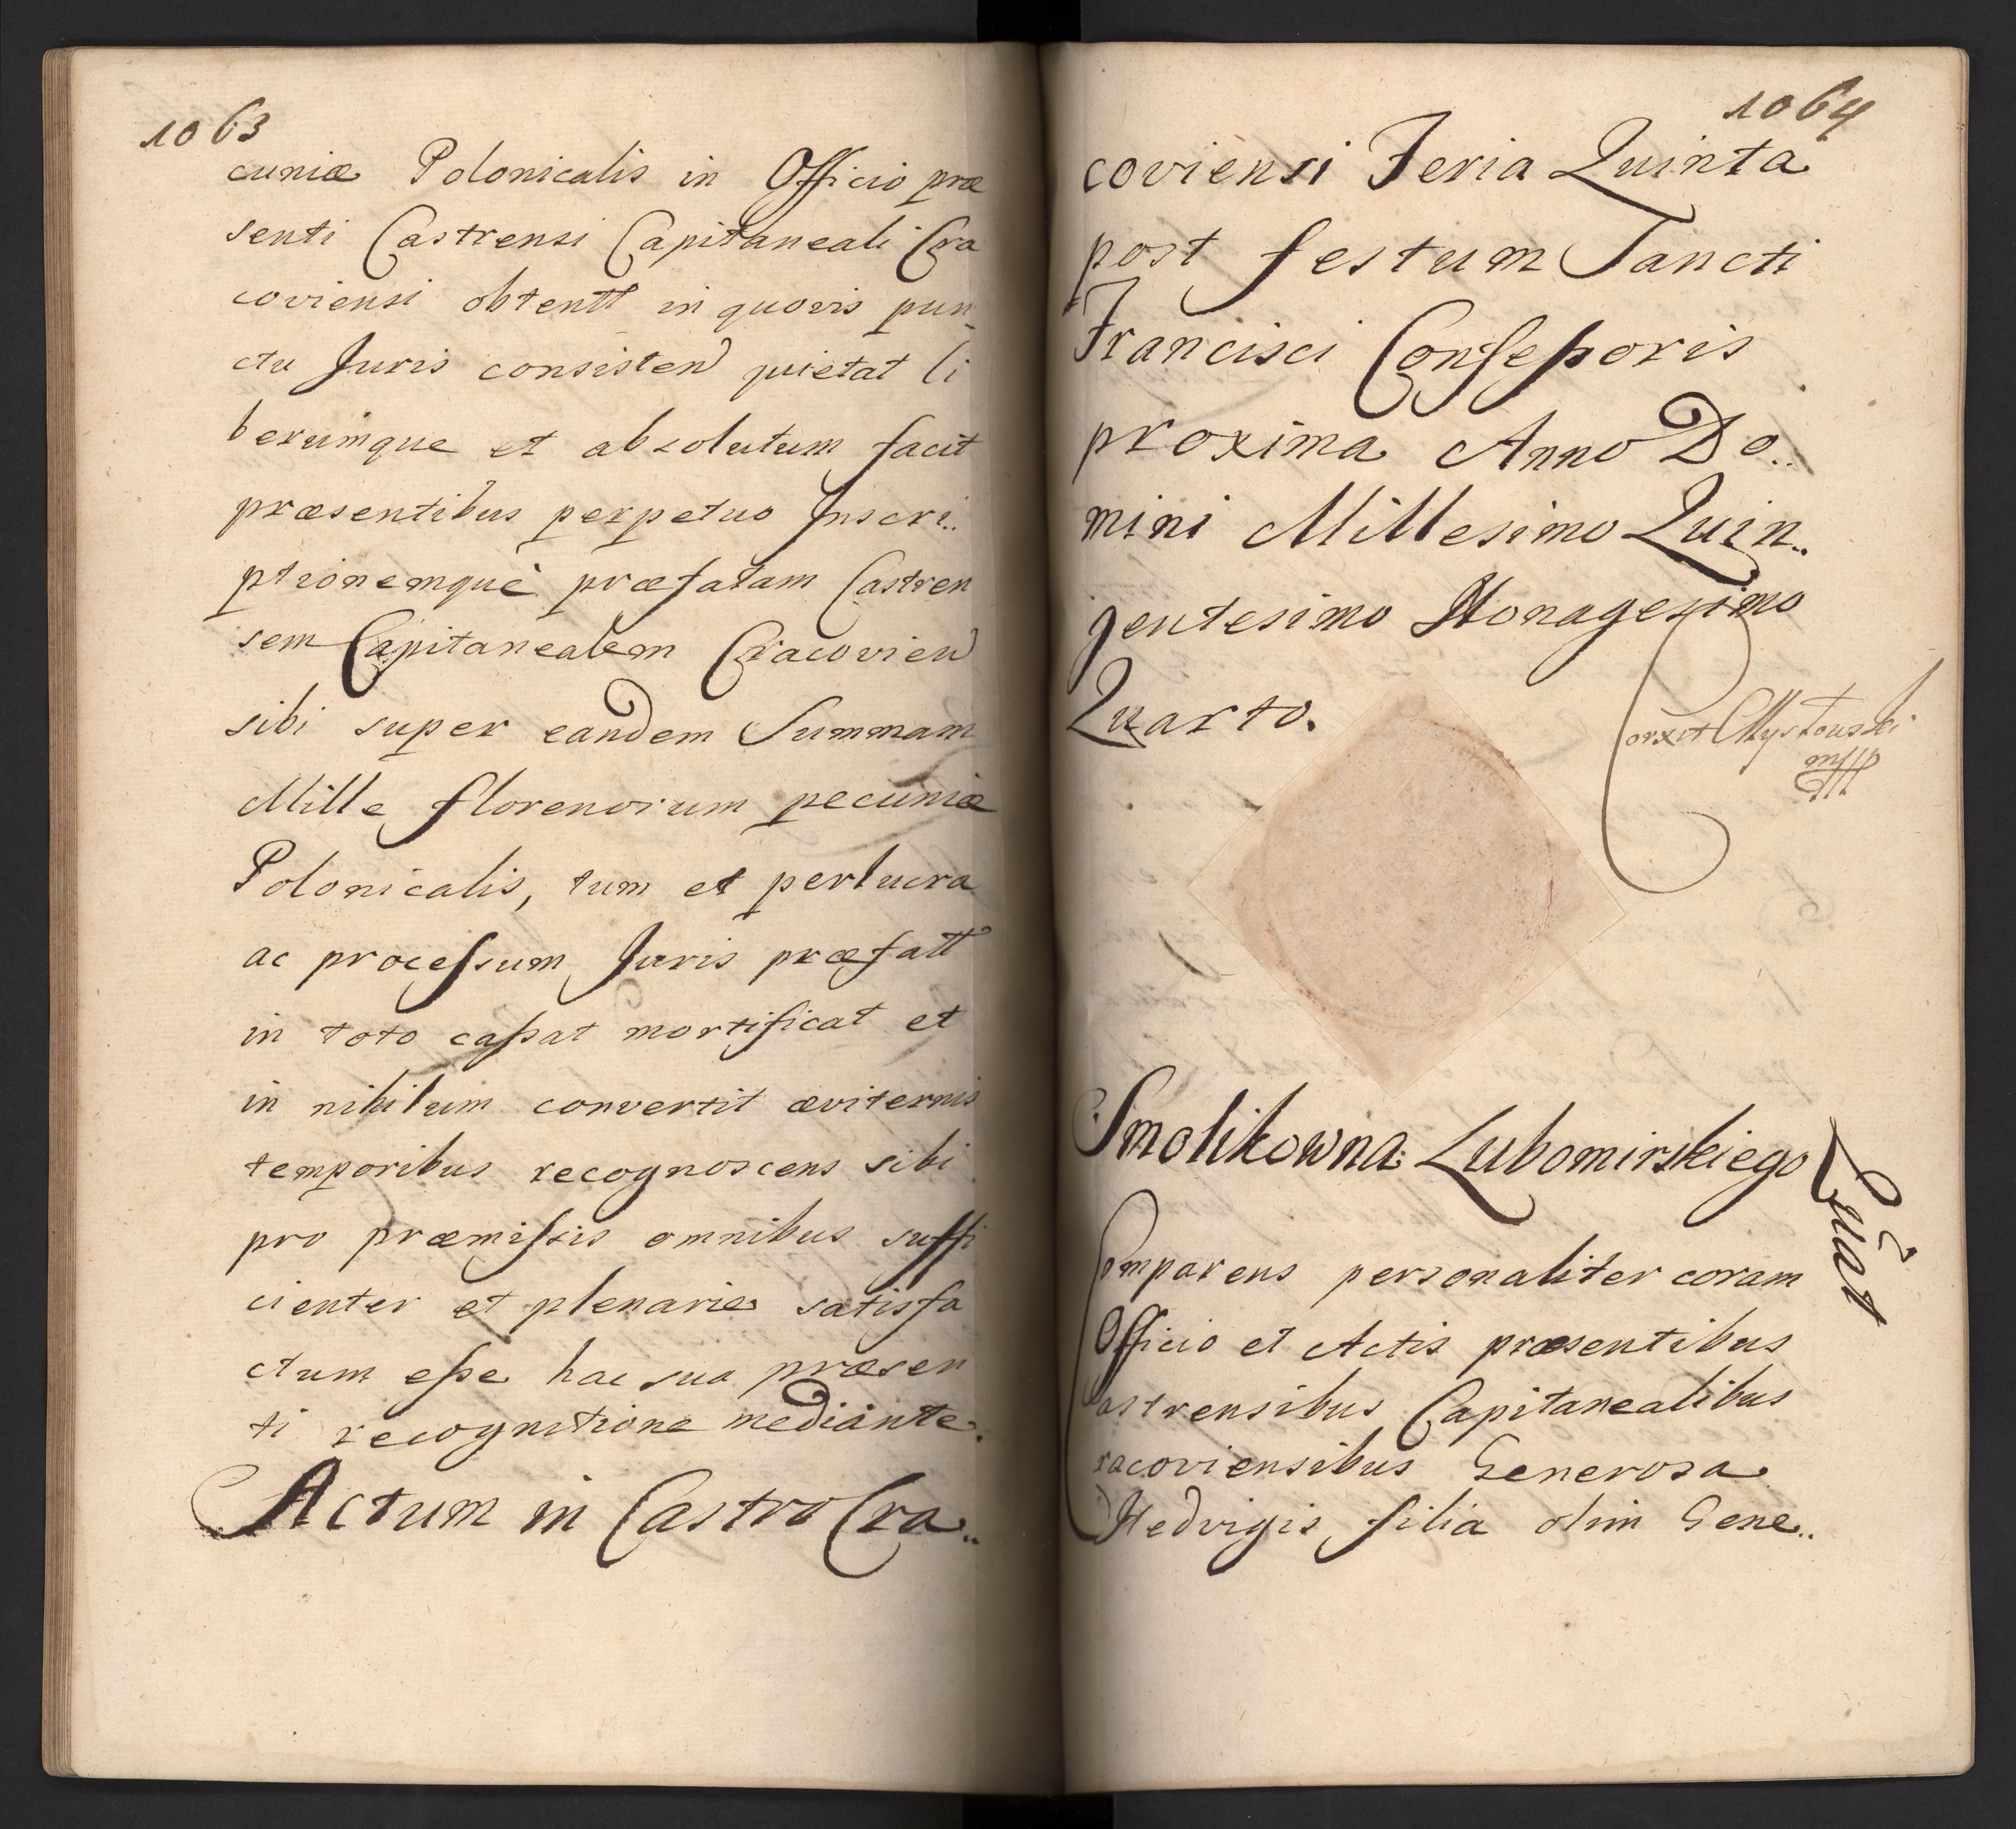 1063
cuniæ Polonicalis in Officio præ
senti Castrensi Capitaneali Cra
coviensi obtentt in quovis pun
ctu Juris consisten quietat li
berumque et absolutum facit
præsentibus perpetuo Inscri..
ptionemque præfatam Castren
sem Capitanealem Cracovien
sibi super eandem Summam
Mille florenorum pecuniæ
Polonicalis, tum et per lucra
ac processum Juris præfatt
in toto cassat mortificat et
in nihilum convertit æviternis
temporibus recognoscens sibi
pro præmissis omnibus suffi
cienter et plenarie satisfa
ctum esse hac sua præsen
ti recognitione mediante.
Actum in Castro Cra..
1064
coviensi Feria Quinta
post festum Sancti
Francisci Confessoris
proxima Anno Do..
mini Millesimo Quin..
gentesimo Nonagesimo
Quarto.
mpp
Smolikowna Lubomirskiego
Quat
Comparens personaliter coram
Officio et Actis præsentibus
Castrensibus Capitanealibus
Cracoviensibus Generosa
Hedvigis filia olim Gene..